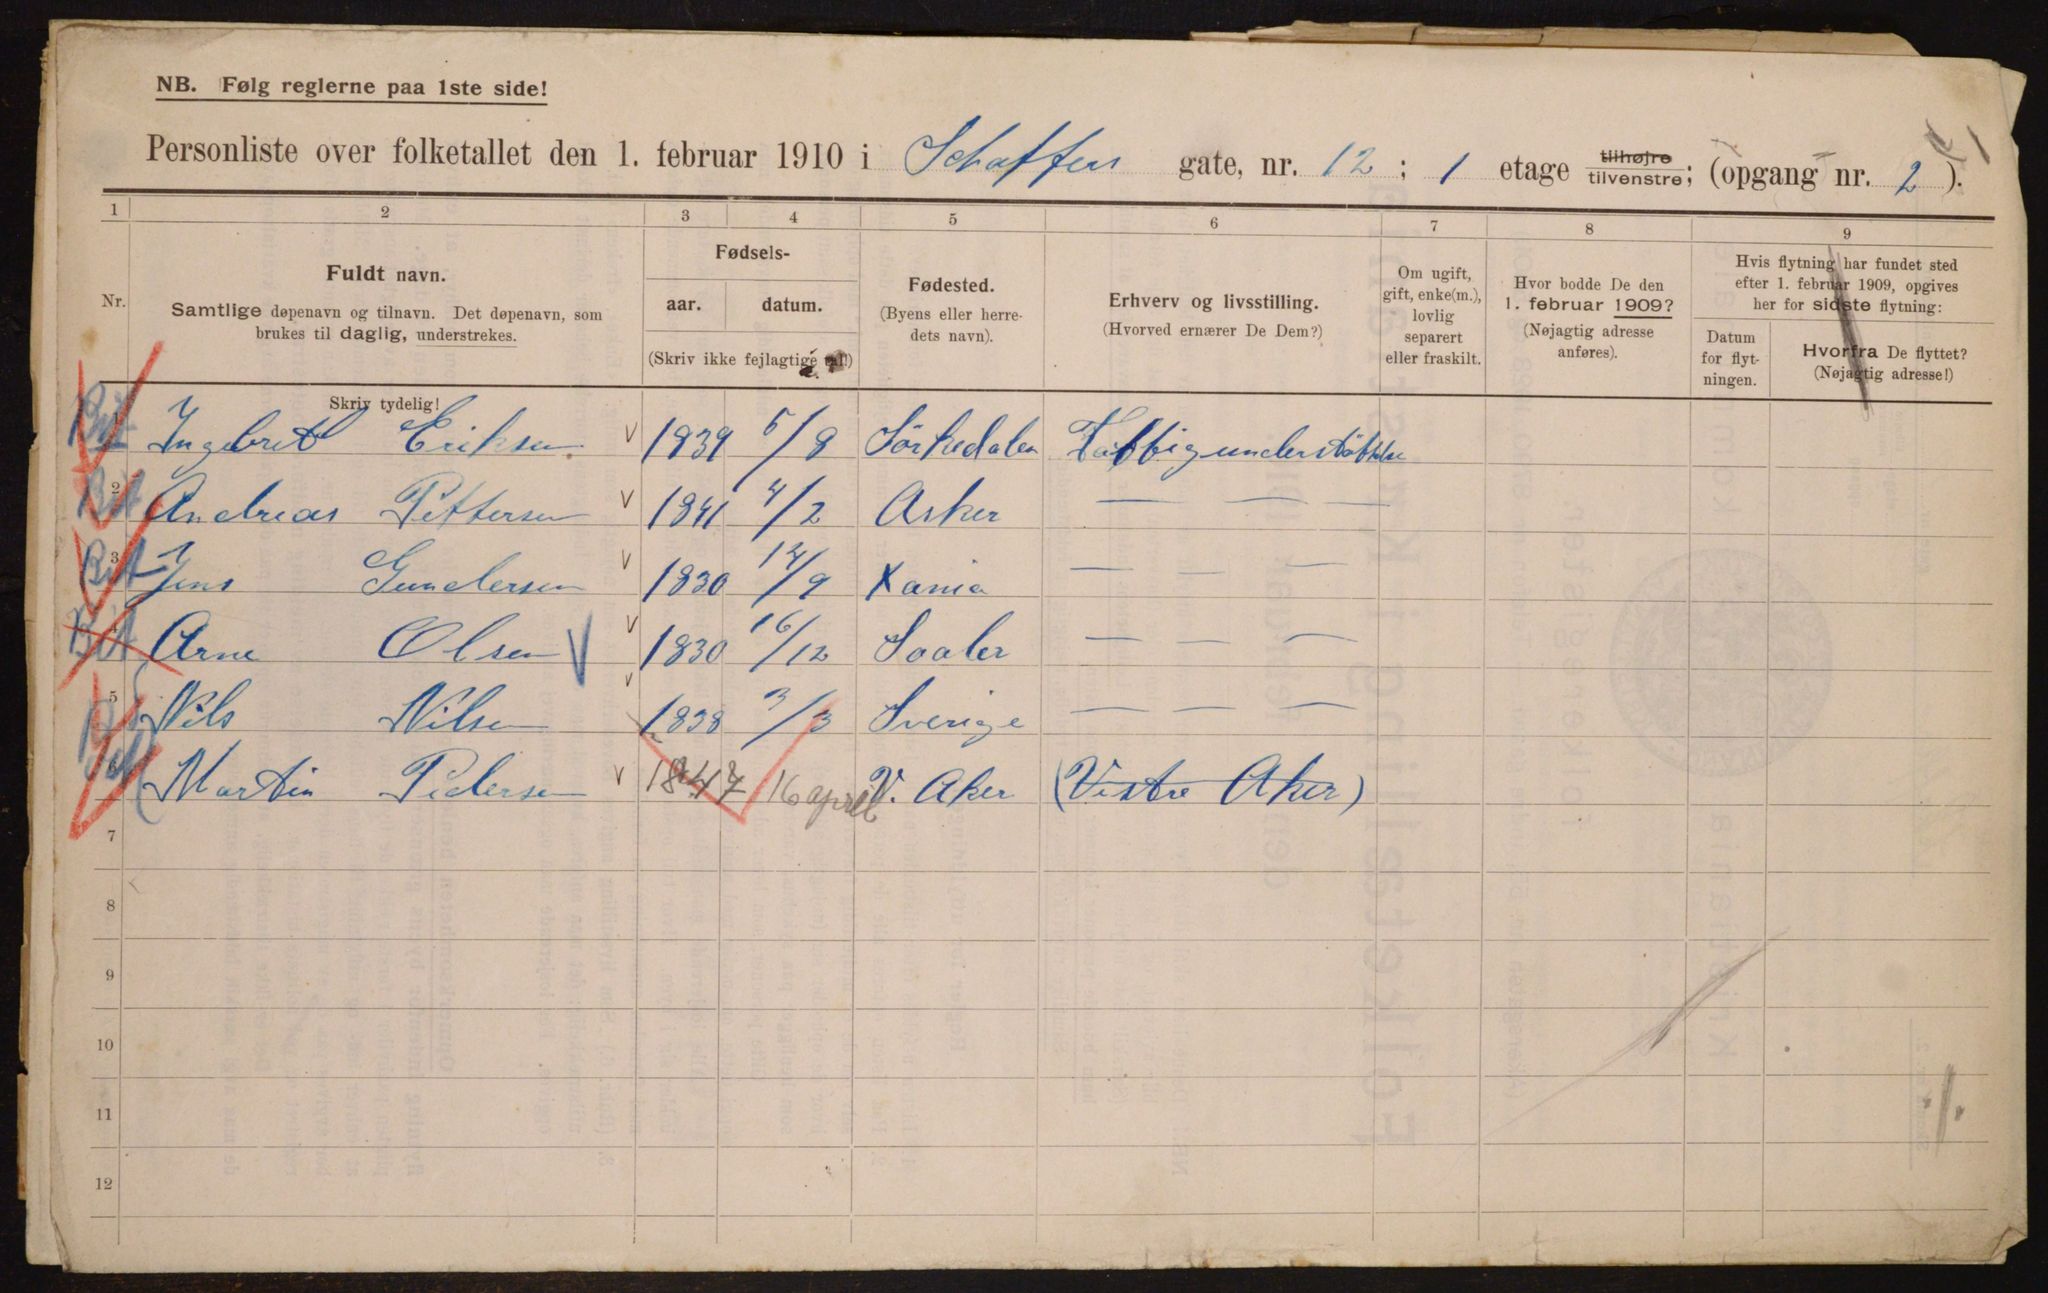 NB. Følg reglerne paa 1ste side!
Personliste over folketallet den 1. februar 1910 i Schaffers gate, nr. 12; 1 etage tilhøjre tilvenstre; (opgang nr. 2).
1 2 3 4 5 6 7 8 9
Nr.
Fuldt navn.
Samtlige døpenavn og tilnavn. Det døpenavn, som
brukes til daglig, understrekes.
Skriv tydelig!
Fødsels-
aar. datum.
(Skriv ikke fejlagtige tal!)
Fødested.
(Byens eller herre-
dets navn).
Erhverv og livsstilling.
(Hvorved ernærer De Dem?)
Om ugift,
gift, enke(m.),
lovlig
separert
eller fraskilt.
Hvor bodde De den
1. februar 1909?
(Nøjagtig adresse
anføres).
Hvis flytning har fundet sted
efter 1. februar 1909, opgives
her for sidste flytning:
Datum
for flyt-
ningen.
Hvorfra De flyttet?
(Nøjagtig adresse!)
1 Ingebret Eriksen 1839 5/8 Sørkedalen Fattigunderstøttelse
2 Andreas Pettersen 1841 4/2 Asker — — —
3 Jens Gundersen 1830 12/9 Xania — — —
4 Arne Olsen 1830 16/12 Soaler — — —
5 Nils Nilsen 1838 3/3 Sverige — — —
6 Martin Pedersen 1847 16 april V. Aker (Vestre Aker)
7
8
9
10
11
12